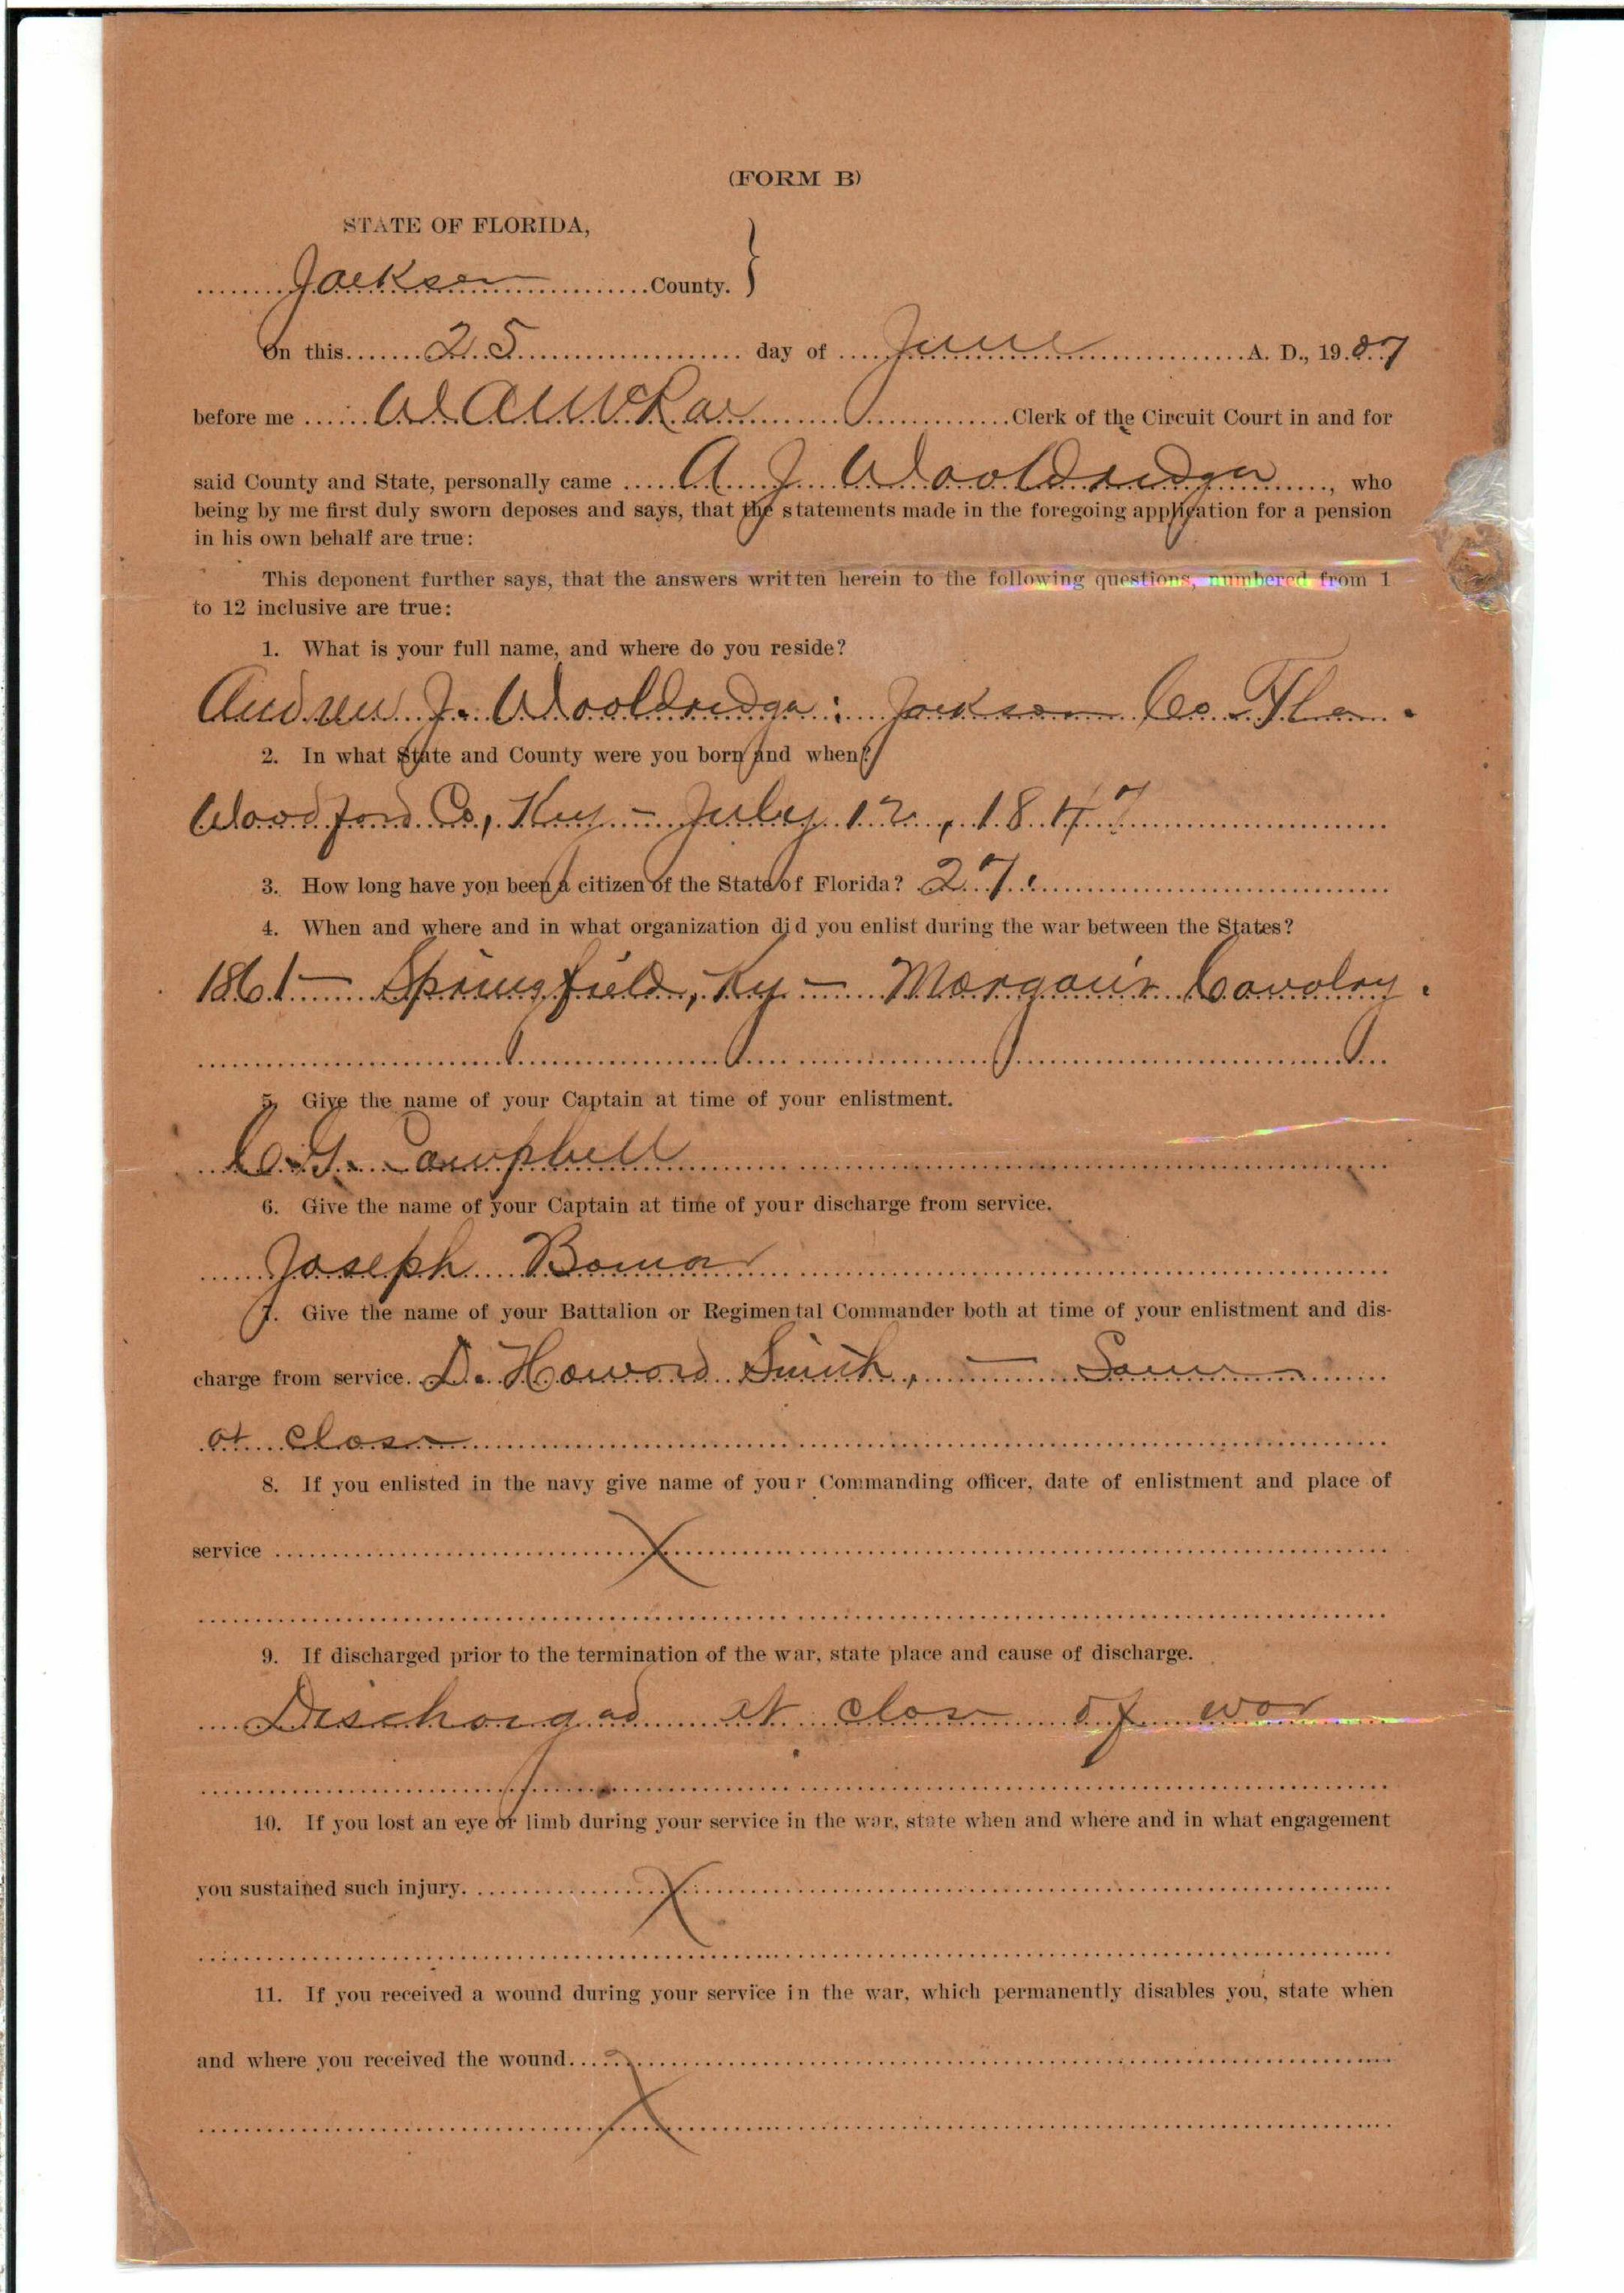 (FORM B)
STATE OF FLORIDA,
Jackson County. }
On this 25 day of June A. D., 1907
before me Clerk of the Circuit Court in and for
said County and State, personally came A J Wooldridge, who
being by me first duly sworn deposes and says, that the statements made in the foregoing application for a pension
in his own behalf are true:
This deponent further says, that the answers written herein to the following questions, numbered from 1
to 12 inclusive are true:
1. What is your full name, and where do you reside?
Andrew J. Wooldridge; Jackson Co. Fla.
2. In what State and County were you born and when?
Woodford Co, Ky - July 12, 1847
3. How long have you been a citizen of the State of Florida? 27.
4. When and where and in what organization did you enlist during the war between the States?
1861 - Springfield, Ky - Morgan's Cavalry.
5. Give the name of your Captain at time of your enlistment.
C. G. Campbell
6. Give the name of your Captain at time of your discharge from service.
Joseph Bomar
7. Give the name of your Battalion or Regimental Commander both at time of your enlistment and dis-
charge from service. D. Howard Smith, - Same
at close
8. If you enlisted in the navy give name of your Commanding officer, date of enlistment and place of
service X
9. If discharged prior to the termination of the war, state place and cause of discharge.
Discharged at close of war
10. If you lost an eye or limb during your service in the war, state when and where and in what engagement
you sustained such injury. X
11. If you received a wound during your service in the war, which permanently disables you, state when
and where you received the wound.
X